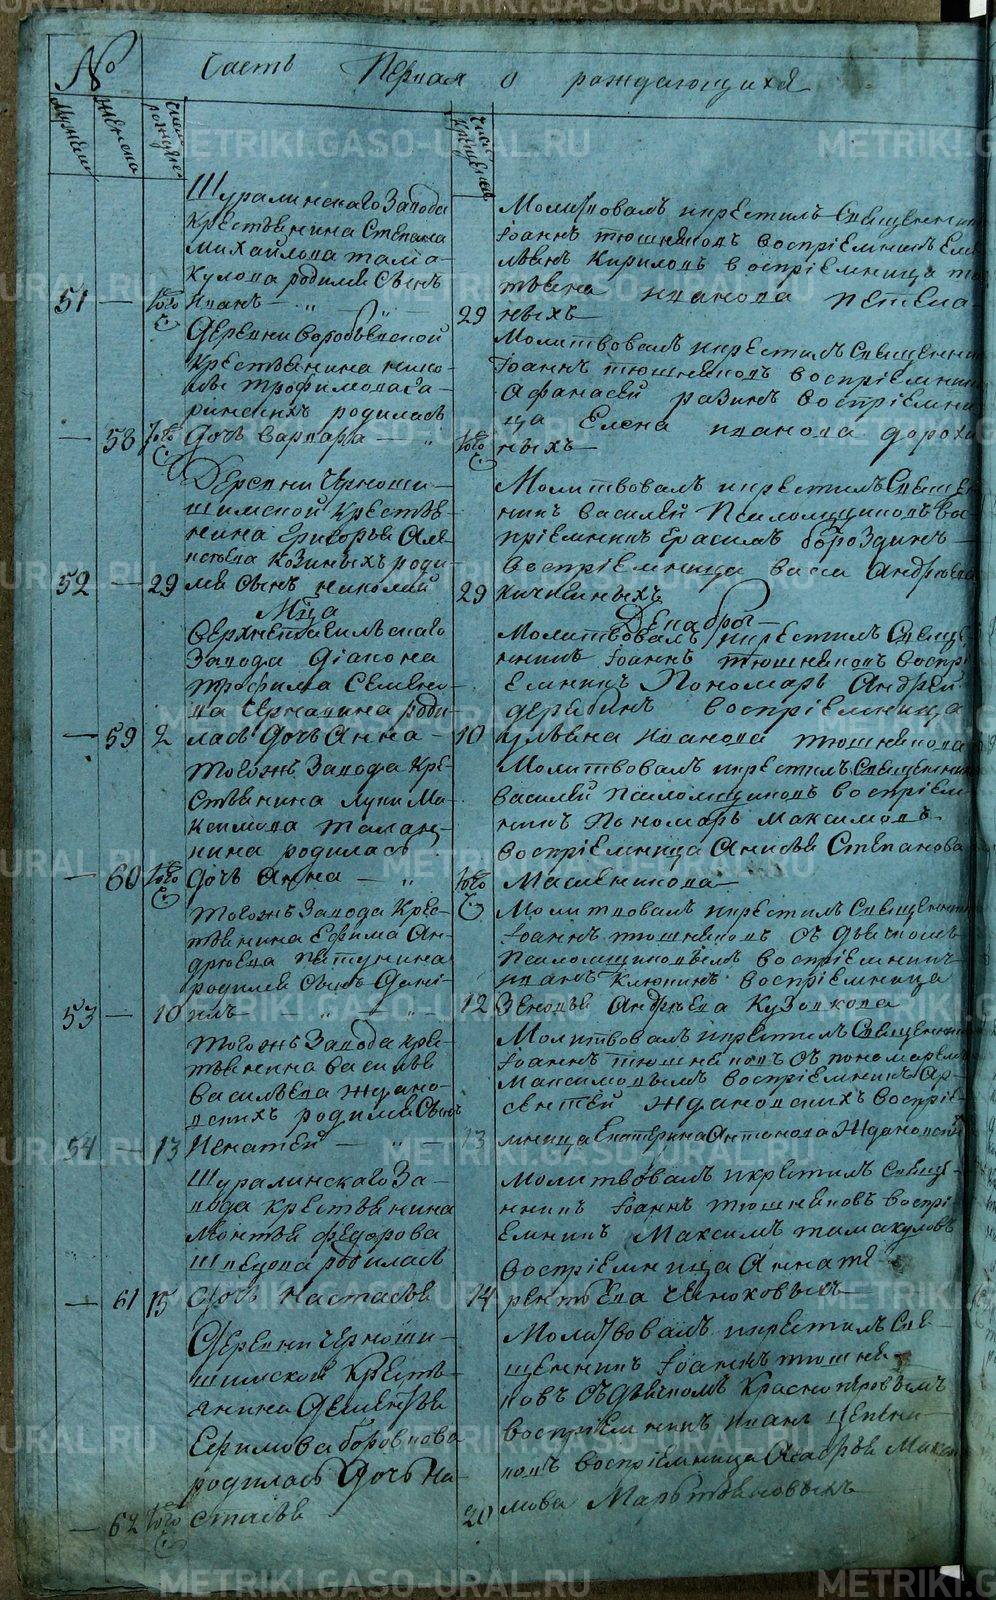 №
Часть Первая о раждающихся
Мужеска
Женска
Число рожденія
Число крещенія
Шуралинскаго Завода
Крестьянина Степана
Михайлова тама-
кулова родился сынъ
51 — того ч. Иванъ — 29
Молитвовалъ икрестилъ Священникъ
Іоаннъ тюшняковъ воспріемникъ Еме-
льянъ Кириловъ воспріемница
иванова
ныхъ —
Деревни воробьевской
крестьянина нико-
трофимова
родилась
— 58 того ч. Дочь варвара — того ч.
Молитвовалъ икрестилъ Священникъ
Іоаннъ тюшняковъ воспріемникъ
Афанасей разинъ воспріемни-
ца Елена иванова дорохи
ныхъ —
Деревни черноши-
шимской крестья-
нина Григорья Але-
ксѣева Козиныхъ роди-
52 — 29 лся сынъ николай 29
Молитвовалъ икрестилъ Священ-
никъ василей Псаломщиковъ вос-
пріемникъ Герасимъ бороздинъ —
воспріемница васа Андрѣева
Кичигиныхъ
Мца Декабря —
верхнетагильскаго
Завода Діакона
трофима Семено-
ва роди-
— 59 2 лась Дочь Анна — 10
Молитвовалъ икрестилъ Священ-
никъ Іоаннъ тюшняковъ воспрі-
емникъ Пономарь Андрей
дерябинъ воспріемница
ульяна иванова тюшнякова
тогожъ Завода Кре-
стьянина луки Ма-
ксимова талан-
кина родилась
— 60 того ч. Дочь Анна — того ч.
Молитвовалъ икрестилъ Священникъ
василей Псаломщиковъ воспріем-
никъ Пономарь Максимовъ
воспріемница Анисья Степанова
Масленикова —
тогожъ Завода Крес-
тьянина Ефима Ан-
дрѣева петунина
родился сынъ Дани-
53 — 10 илъ — 12
Молитвовалъ икрестилъ Священникъ
Іоаннъ тюшняковъ съ дьячкомъ
Псаломщиковымъ воспріемникъ
иванъ Клюкинъ воспріемница
Зеновья Андрѣева Кузовкова
тогожъ Завода кре-
стьянина василья
васильева Ждано-
вскихъ родился Сынъ
54 — 13 Игнатей — 13
Молитвовалъ икрестилъ Священникъ
Іоаннъ тюшняковъ съ пономаремъ
Максимовымъ воспріемникъ Ар-
сентей Ждановскихъ воспріе-
мница Екатерина Антонова Ждановских
Шуралинскаго За-
вода крестьянина
Мокѣя федорова
Швецова родилась
— 61 15 Дочь Настасья 14
Молитвовалъ икрестилъ Свяще-
нникъ Іоаннъ тюшняковъ воспрі-
емникъ Максимъ тамакуловъ
воспріемница Анна те-
рентьева чесноковыхъ
Деревни черноши-
шимской Кресть-
янина Дементья
Ефимова боровкова
родилась Дочь На-
— 62 того ч. стасья 20
Молитвовалъ икрестилъ Свя-
щенникъ Іоаннъ тюшня-
ковъ съ дьячкомъ Красноперовымъ
воспріемникъ иванъ
воспріемница Агафья Макси-
мова Мартьяновыхъ
METRIKI.GASO-URAL.RU